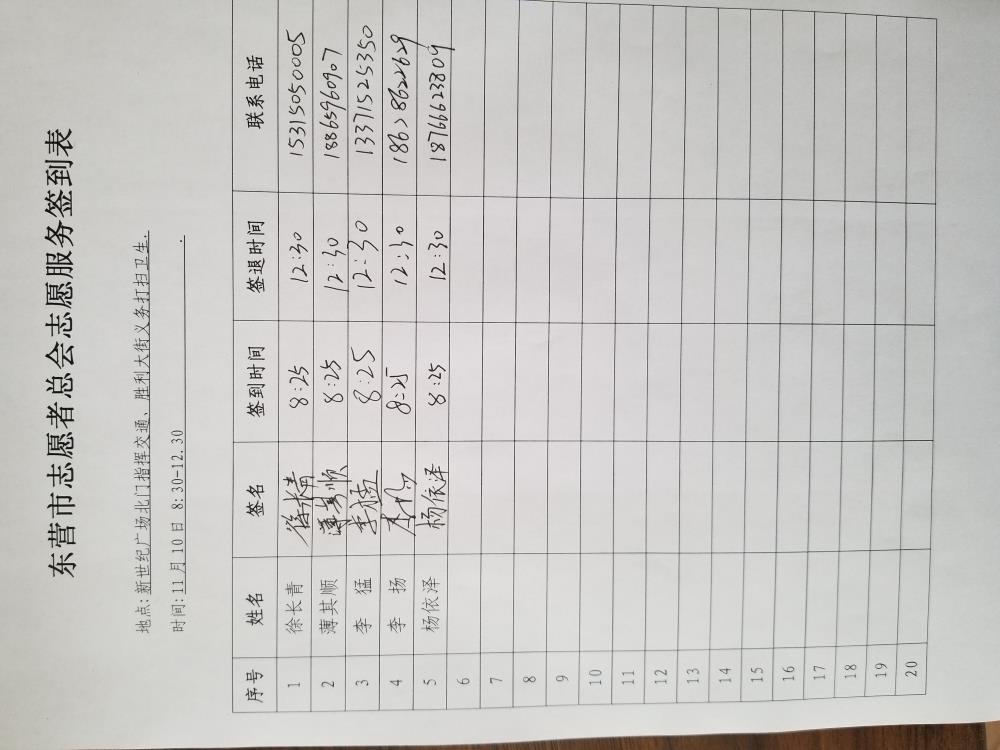 东营市志愿者总会志愿服务签到表
地点:新世纪广场北门指挥交通、胜利大街义务打扫卫生.
时间:11月10日 8:30-12.30 .
序号 姓名 签名 签到时间 签退时间 联系电话
1 徐长青 徐长青 8:25 12:30 15315050005
2 薄其顺 薄其顺 8:25 12:30 18865960907
3 李 猛 李猛 8:25 12:30 13371525350
4 李 扬 李扬 8:25 12:30
5 杨依泽 杨依泽 8:25 12:30 18766623809
6
7
8
9
10
11
12
13
14
15
16
17
18
19
20